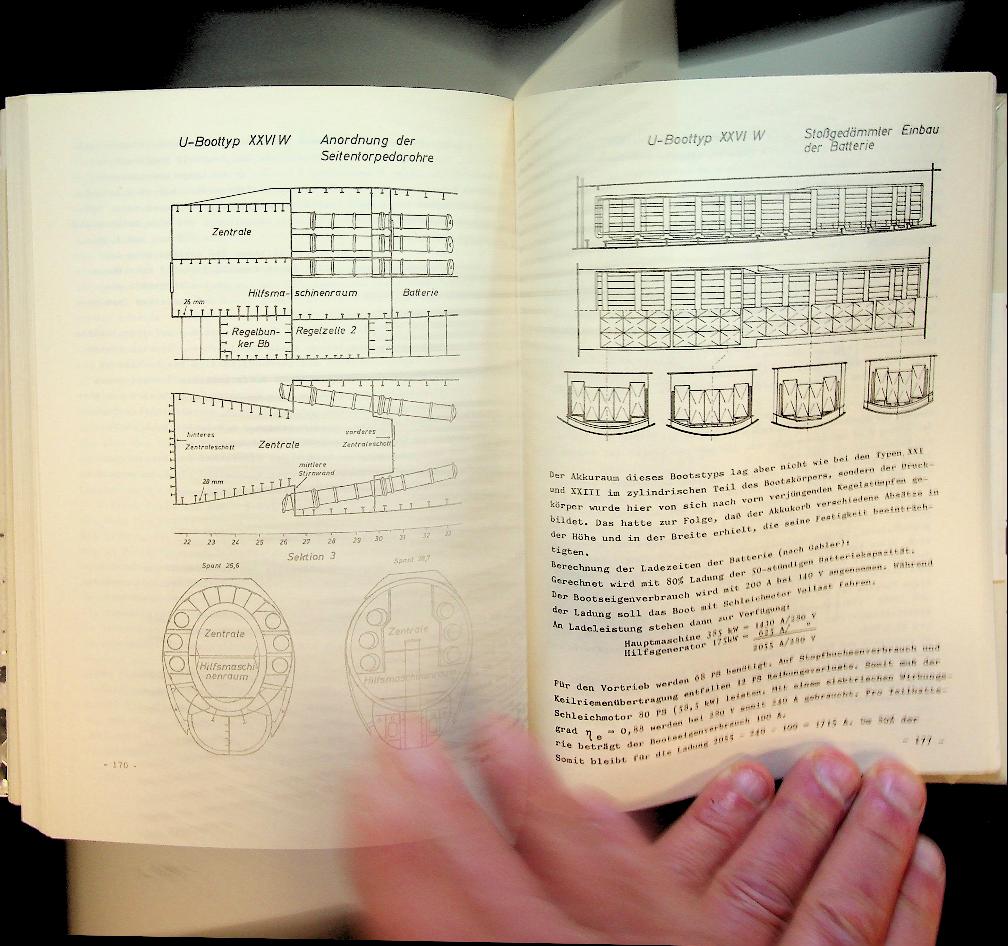 U-Boottyp XXVI W Anordnung der
Seitentorpedorohre
Zentrale
Hilfsmaschinenraum Batterie
26 mm
Regelbun-
ker Bb
Regelzelle 2
hinteres
Zentraleschott
Zentrale
vorderes
Zentraleschott
mittlere
Stirnwand
28 mm
22 23 24 25 26 27 28 29 30 31 32 33
Sektion 3
Spant 25,6
Spant 28,7
Zentrale
Hilfsmaschi-
nenraum
Zentrale
Hilfsmaschinenraum
- 176 -
U-Boottyp XXVI W Stoßgedämmter Einbau
der Batterie
Der Akkuraum dieses Bootstyps lag aber nicht wie bei den Typen XXI
und XXIII im zylindrischen Teil des Bootskörpers, sondern der Druck-
körper wurde hier von sich nach vorn verjüngenden Kegelstümpfen ge-
bildet. Das hatte zur Folge, daß der Akkukorb verschiedene Absätze in
der Höhe und in der Breite erhielt, die seine Festigkeit beeinträch-
tigten.
Berechnung der Ladezeiten der Batterie (nach Gabler):
Gerechnet wird mit 80% Ladung der 50-stündigen Batteriekapazität.
Der Bootseigenverbrauch wird mit 200 A bei 140 V angenommen. Während
der Ladung soll das Boot mit Schleichmotor Vollast fahren.
An Ladeleistung stehen dann zur Verfügung:
Hauptmaschine 385 kW = 1430 A/280 V
Hilfsgenerator 175kW = 625 A/ "
2055 A/280 V
Für den Vortrieb werden 68 PS benötigt. Auf Stopfbuchsenverbrauch und
Keilriemenübertragung entfallen 12 PS Reibungsverluste. Somit muß der
Schleichmotor 80 PS (58,5 kW) leisten. Mit einem elektrischen Wirkungs-
grad ηe = 0,88 werden bei 280 V somit 240 A gebraucht. Pro Teilbatte-
rie beträgt der Bootseigenverbrauch 100 A.
Somit bleibt für die Ladung 2055 - 240 - 100 = 1715 A. Um 80% der
- 177 -